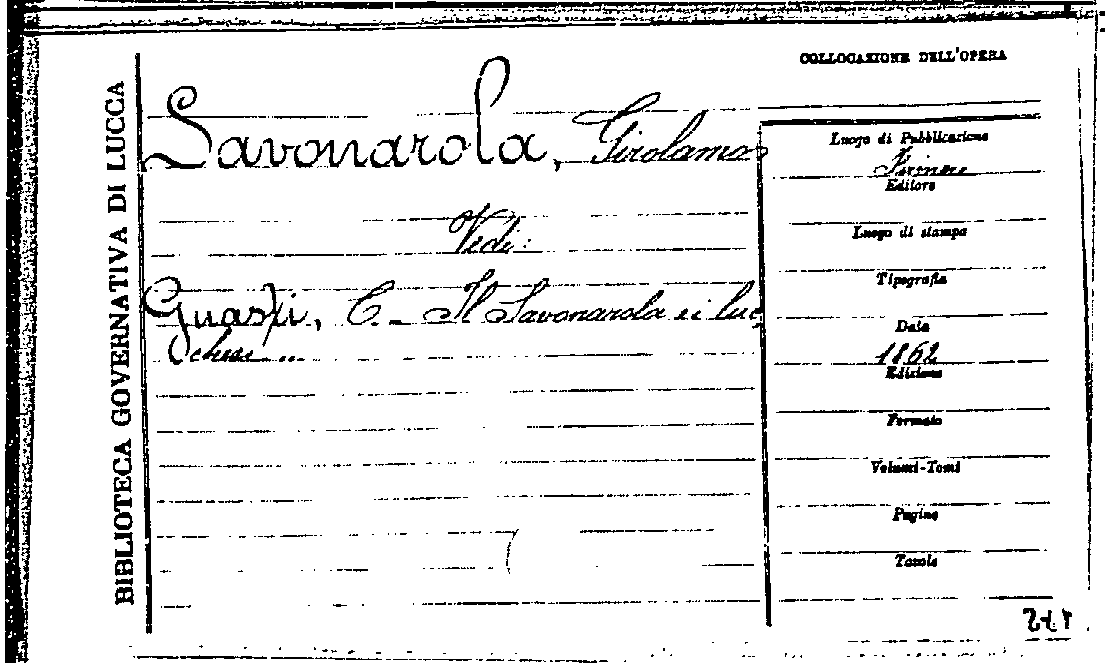 BIBLIOTECA GOVERNATIVA DI LUCCA
COLLOCAZIONE DELL'OPERA
Savonarola, Girolamo
Vedi:
Guasti, C. - Il Savonarola e i luc
chesi ...
Luogo di Pubblicazione
Firenze
Editore
Luogo di stampa
Tipografia
Data
1862
Edizione
Formato
Volumi-Tomi
Pagine
Tavole